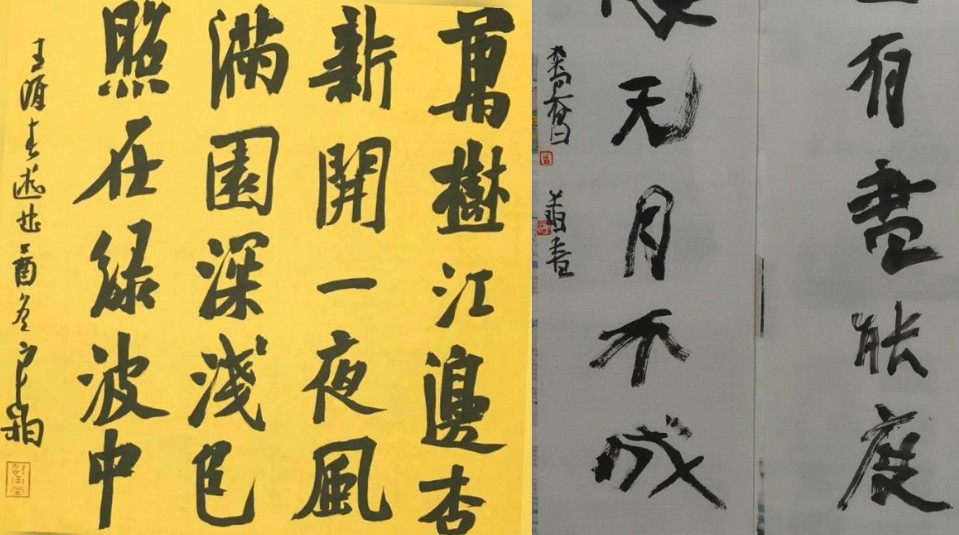 萬樹江邊杏
新開一夜風
滿園深淺色
照在綠波中
王涯春遊曲 酉冬
有書能度
无月不成